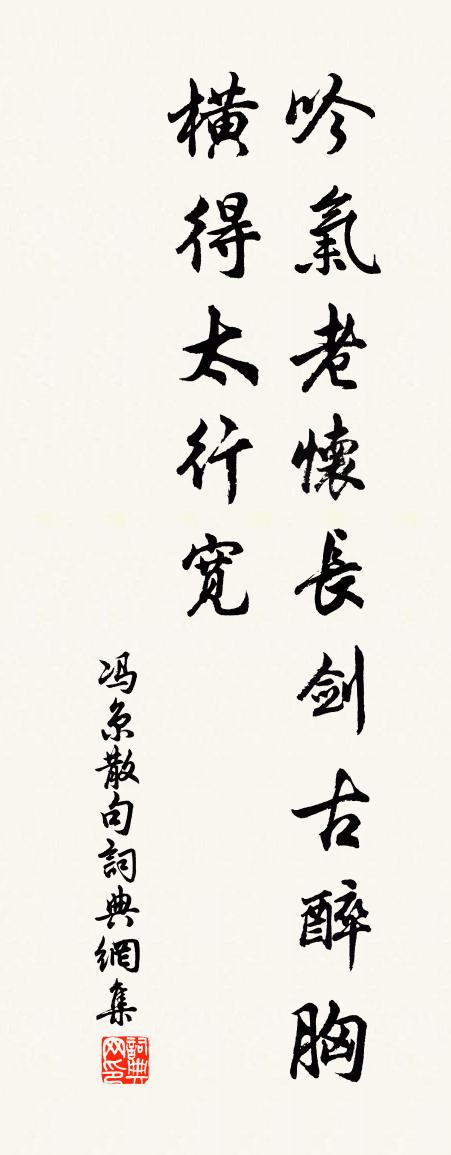 吟氣老懷長劍古醉胸
橫得太行寬
冯京散句詞典網集
詞典网印